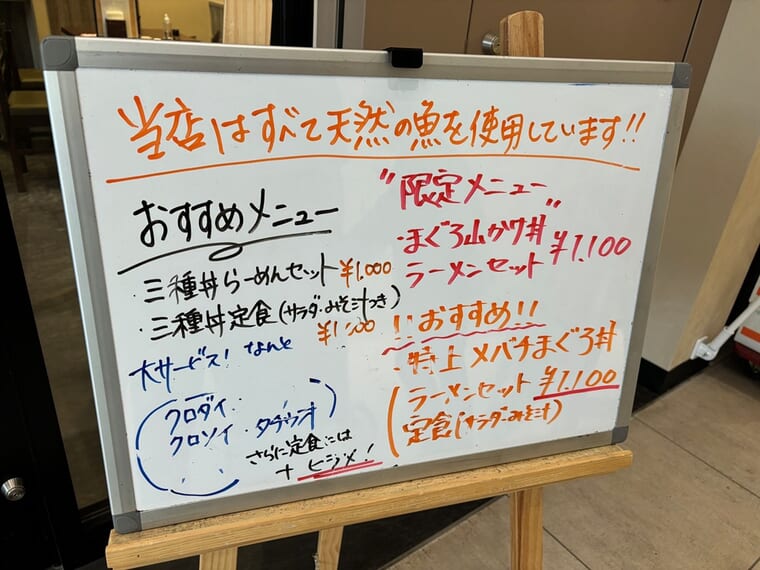 当店はすべて天然の魚を使用しています!!
おすすめメニュー
・三種丼らーめんセット ¥1,000
・三種丼定食(サラダ・みそ汁つき)
¥1,000
大サービス! なんと
(クロダイ・
クロソイ・タチウオ)
さらに定食には
+ヒラメ!
"限定メニュー"
・まぐろ山かけ丼
ラーメンセット ¥1,100
!!おすすめ!!
・特上メバチまぐろ丼
(ラーメンセット ¥1,100
定食(サラダ・みそ汁)